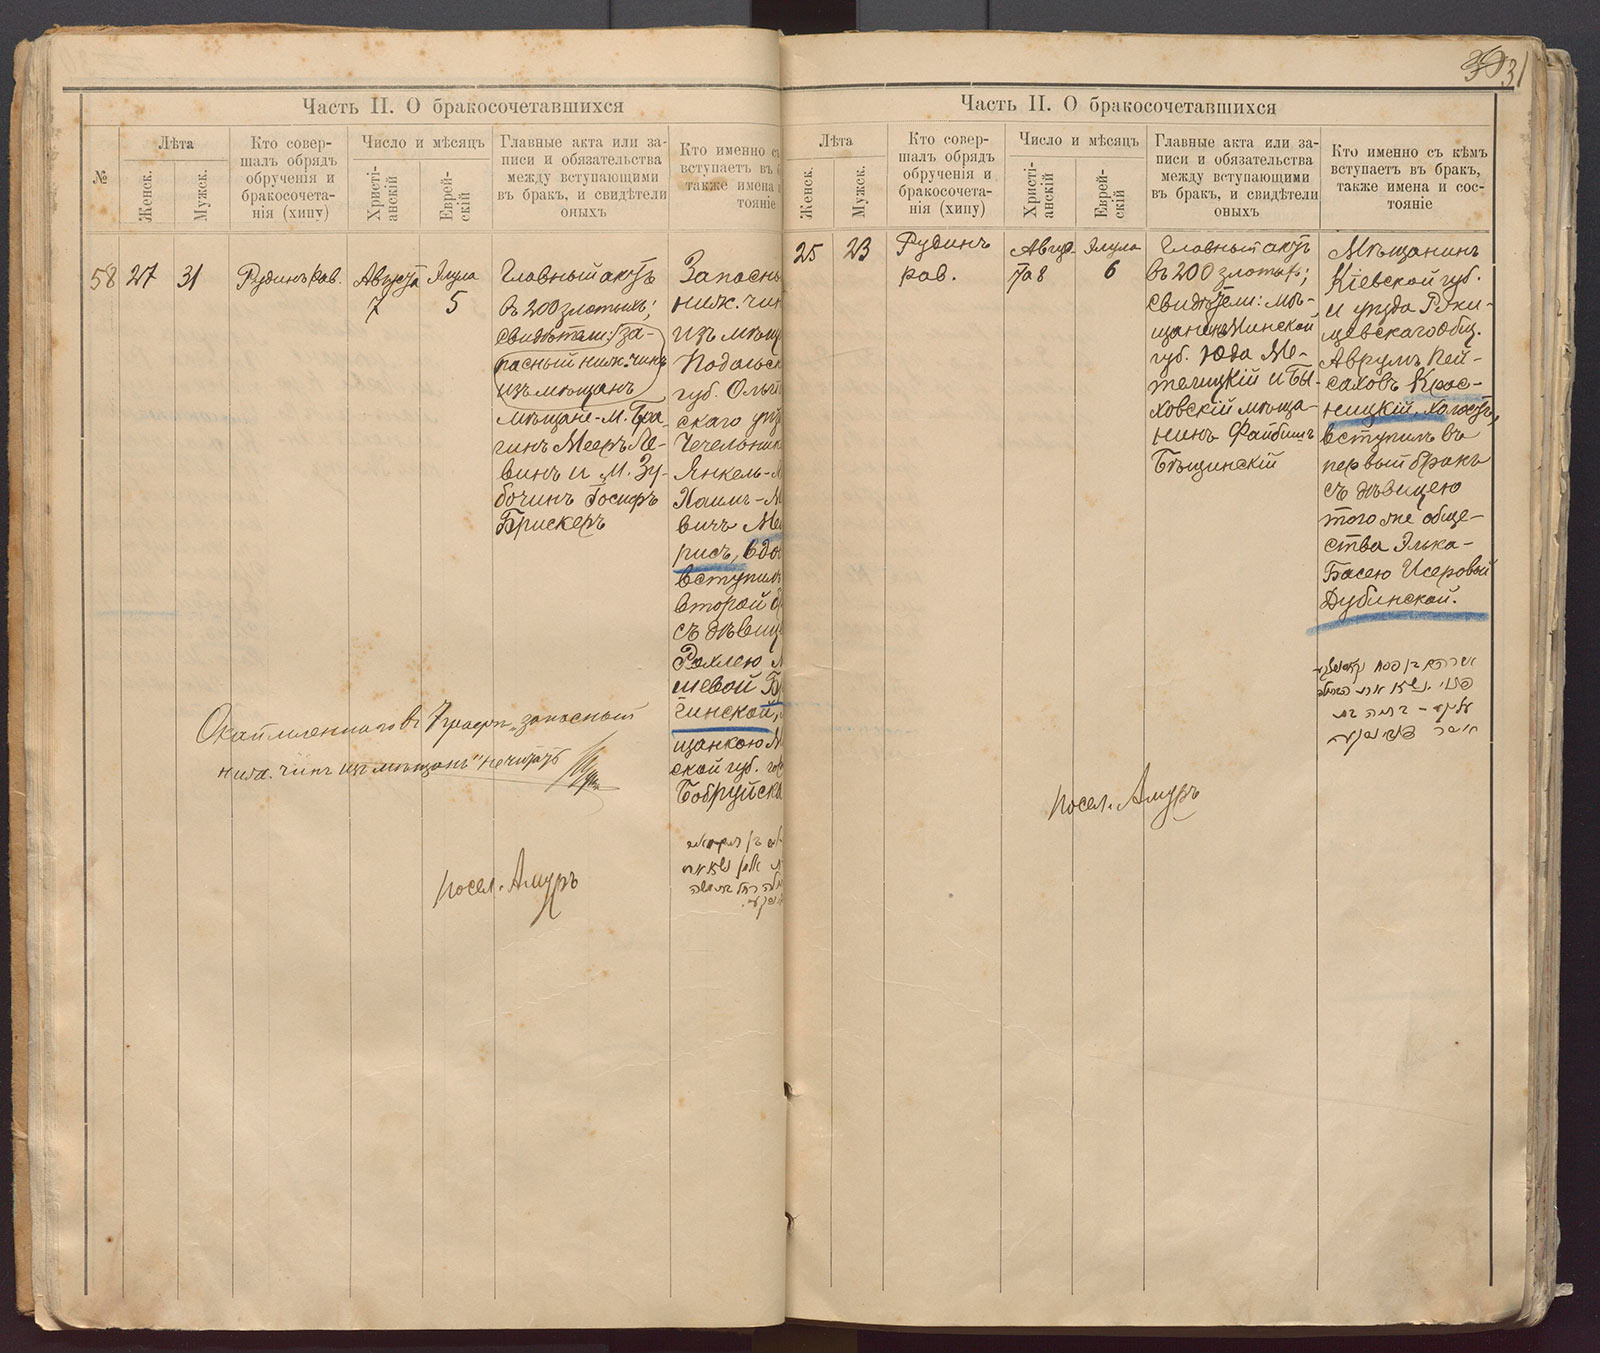 31
Часть II. О бракосочетавшихся
№
Лѣта
Женск.
Мужск.
Кто совер-
шалъ обрядъ
обрученія и
бракосочета-
нія (хипу)
Число и мѣсяцъ
Христі-
анскій
Еврей-
скій
Главные акта или за-
писи и обязательства
между вступающими
въ бракъ, и свидѣтели
оныхъ
Кто именно съ
вступаетъ въ
также имена
тояніе
58
27
31
Рудинъ рав.
Августа
7
Элула
5
Главный актъ
въ 200 злотыхъ;
свидѣтели: за-
пасный ниж. чинъ
изъ мѣщанъ
мѣщане-м. Бра-
гинъ Мееръ Ле-
винъ и м. Зу-
бочинъ Іосифъ
Брискеръ
Запасны
ниж. чин
изъ мѣщ
Подольск
губ. Ольг
скаго уѣз
Чечельник
Янкель-
Хаимъ-М
вичъ Ме
рисъ, вдо
вступилъ
второй б
съ дѣвиц
Рохлею
шевой Б
чинской,
щанкою М
ской губ. го
Бобруйска
Окаймленнаго въ 7 графѣ „запасный
ниж. чинъ изъ мѣщанъ" не читать
посел. Амуръ
Часть II. О бракосочетавшихся
Лѣта
Женск.
Мужск.
Кто совер-
шалъ обрядъ
обрученія и
бракосочета-
нія (хипу)
Число и мѣсяцъ
Христі-
анскій
Еврей-
скій
Главные акта или за-
писи и обязательства
между вступающими
въ бракъ, и свидѣтели
оныхъ
Кто именно съ кѣмъ
вступаетъ въ бракъ,
также имена и сос-
тояніе
25
23
Рудинъ
рав.
Авгус.
Элула
6
Главный актъ
въ 200 злотых;
свидѣтели: мѣ-
щане Минской
губ. Юда Ме-
телицкій и Бы-
ховскій мѣща-
нинъ Файбишъ
Бѣщинскій
Мѣщанинъ
Кіевской губ.
и уѣзда Роки-
Аврумъ Пей-
саховъ Крас-
ницкій, холостъ,
вступилъ въ
первый бракъ
съ дѣвицею
того же обще-
ства Элька-
Басею Исеровой
Дубинской.
посел. Амуръ